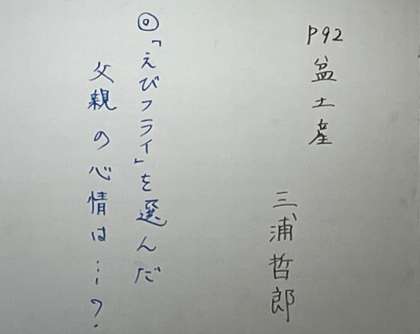 P92 盆土産
三浦哲郎
◎「えびフライ」を選んだ
父親の心情は…?